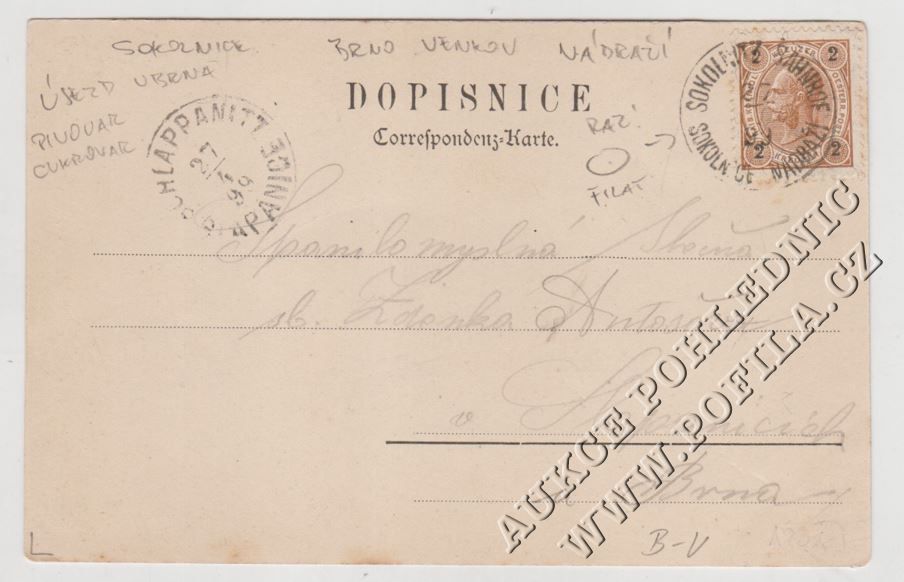 SOKOLNICE BRNO VENKOV NÁDRAŽÍ
ÚJEZD U BRNA
PIVOVAR
CUKROVAR
DOPISNICE
Correſpondenz-Karte.
RAZ.
FILAT
SCHLAPPANITZ
27
99
2 2
2 2
SOKOLNITZ BAHNHOF
SOKOLNICE NÁDRAŽÍ
Spanilomyslná Slečna
sl. Zdenka
v Šlapanicích
u Brna
B-V
AUKCE POHLEDNIC
WWW.POFILA.CZ